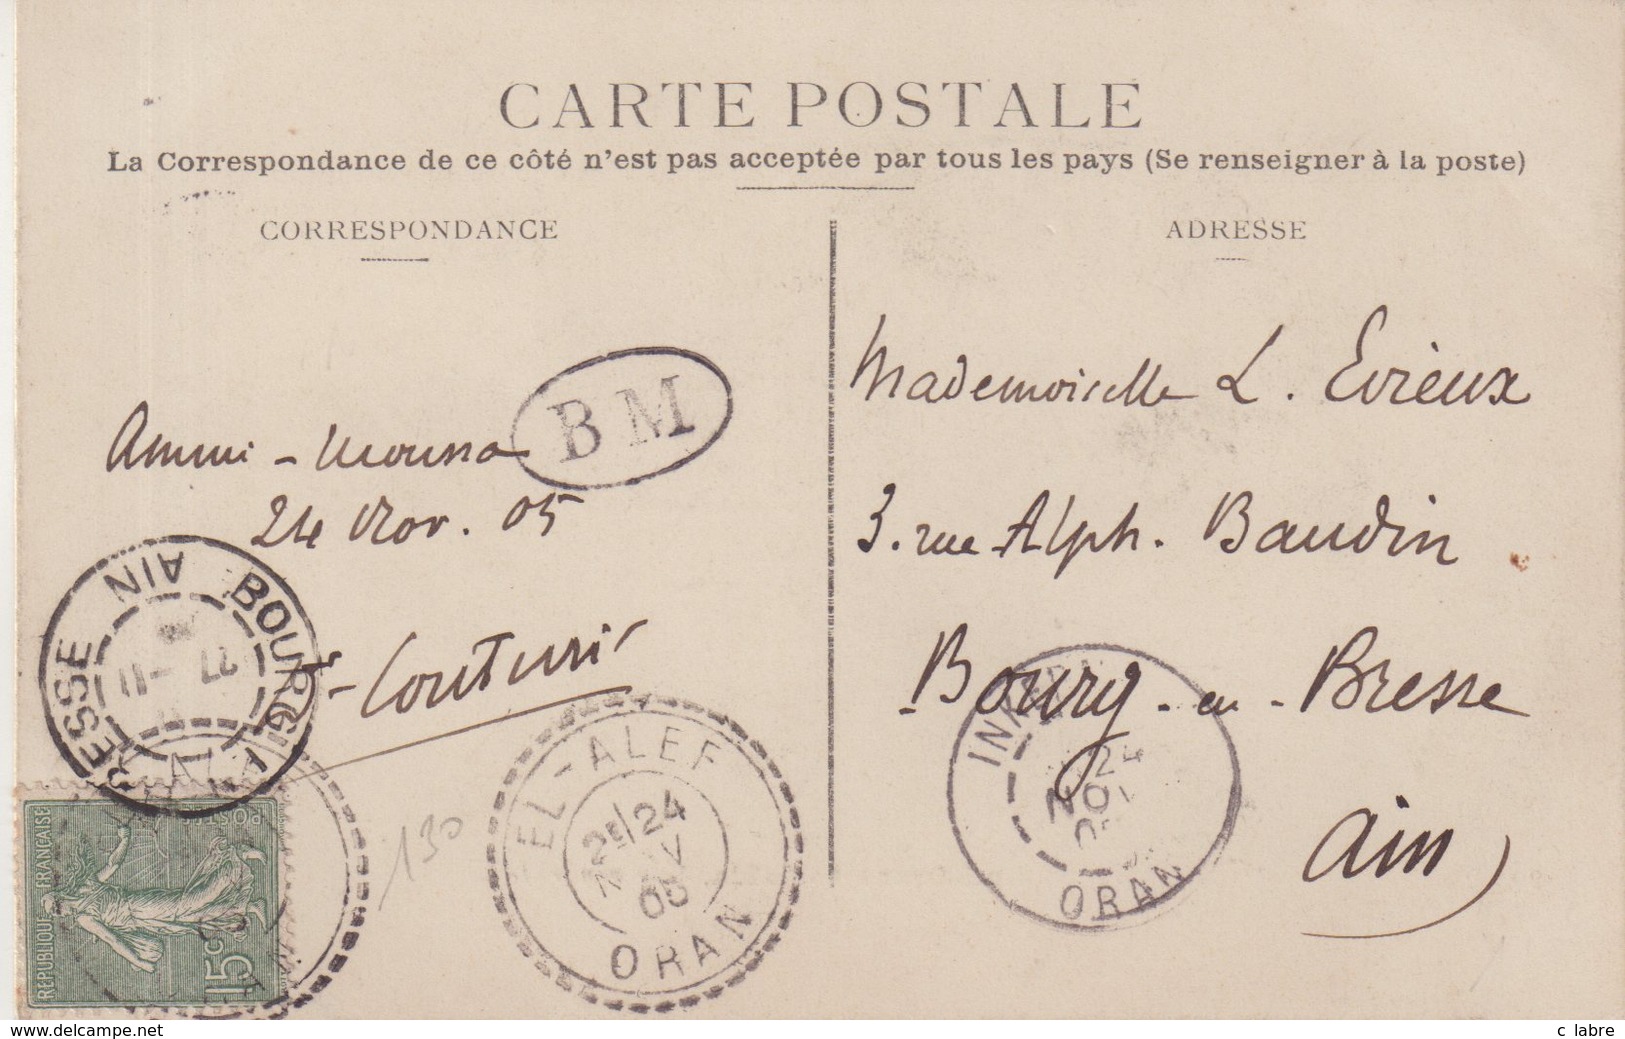 CARTE POSTALE
La Correspondance de ce côté n'est pas acceptée par tous les pays (Se renseigner à la poste)
CORRESPONDANCE
ADRESSE
BM
Ammi-Moussa
24 Nov. 05
Mademoiselle L. Evieux
3. rue Alph. Baudin
Bourg-en-Bresse
Ain
BOURG
BRESSE
AIN
27 -11
EL-ALEF
24
05
ORAN
24
NOV
ORAN
130
REPUBLIQUE FRANÇAISE
POSTES
15c
www.delcampe.net
c labre